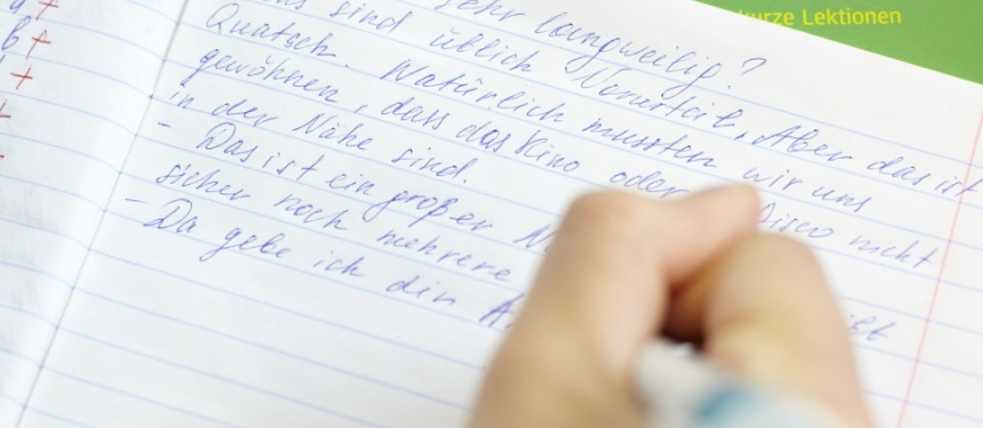 kurze Lektionen
sehr langweilig?
sind üblich Vorurteile. Aber das ist
Quatsch. Natürlich mussten wir uns
gewöhnen, dass das Kino oder Disco nicht
in der Nähe sind.
- Das ist ein großer
sicher noch mehrere
- Da gebe ich dir
b +
+